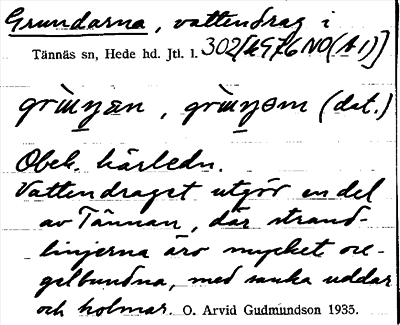 Grundarna, vattendrag i
Tännäs sn, Hede hd. Jtl. l. 302 [AG76 NO (A1)]
(dat.)
Obek. härledn.
Vattendraget utgör en del
av Tännan, där strand-
linjerna äro mycket ore-
gelbundna, med sanka uddar
och holmar. O. Arvid Gudmundson 1935.